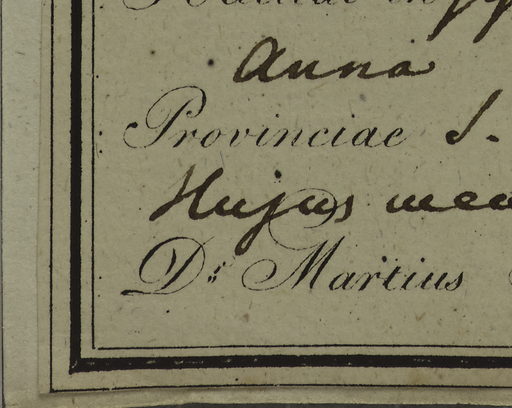 Anna
Provinciae S.
Hujus
Dr. Martius